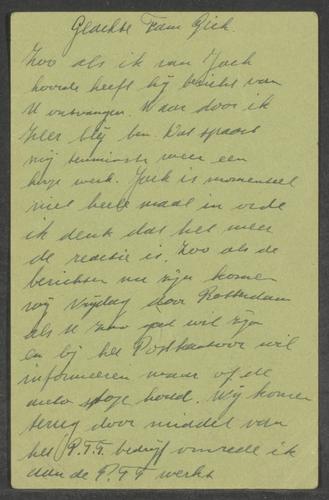 Geachte Fam Gich.
Zoo als ik van Jack
hoorde heeft hij bericht van
U ontvangen. Waar door ik
zeer blij ben. Dat spaart
mij tenminste weer een
hoop werk. Jack is momenteel
niet heele maal in orde
ik denk dat het meer
de reactie is. Zoo als de
berichten nu zijn komen
wij Vrijdag door Rotterdam
als U zoo goed wil zijn
en bij het Postkantoor wil
informeeren waar of de
auto stopt houd. Wij komen
terug door middel van
het P.T.T. bedrijf omrede ik
aan de P.T.T werkt